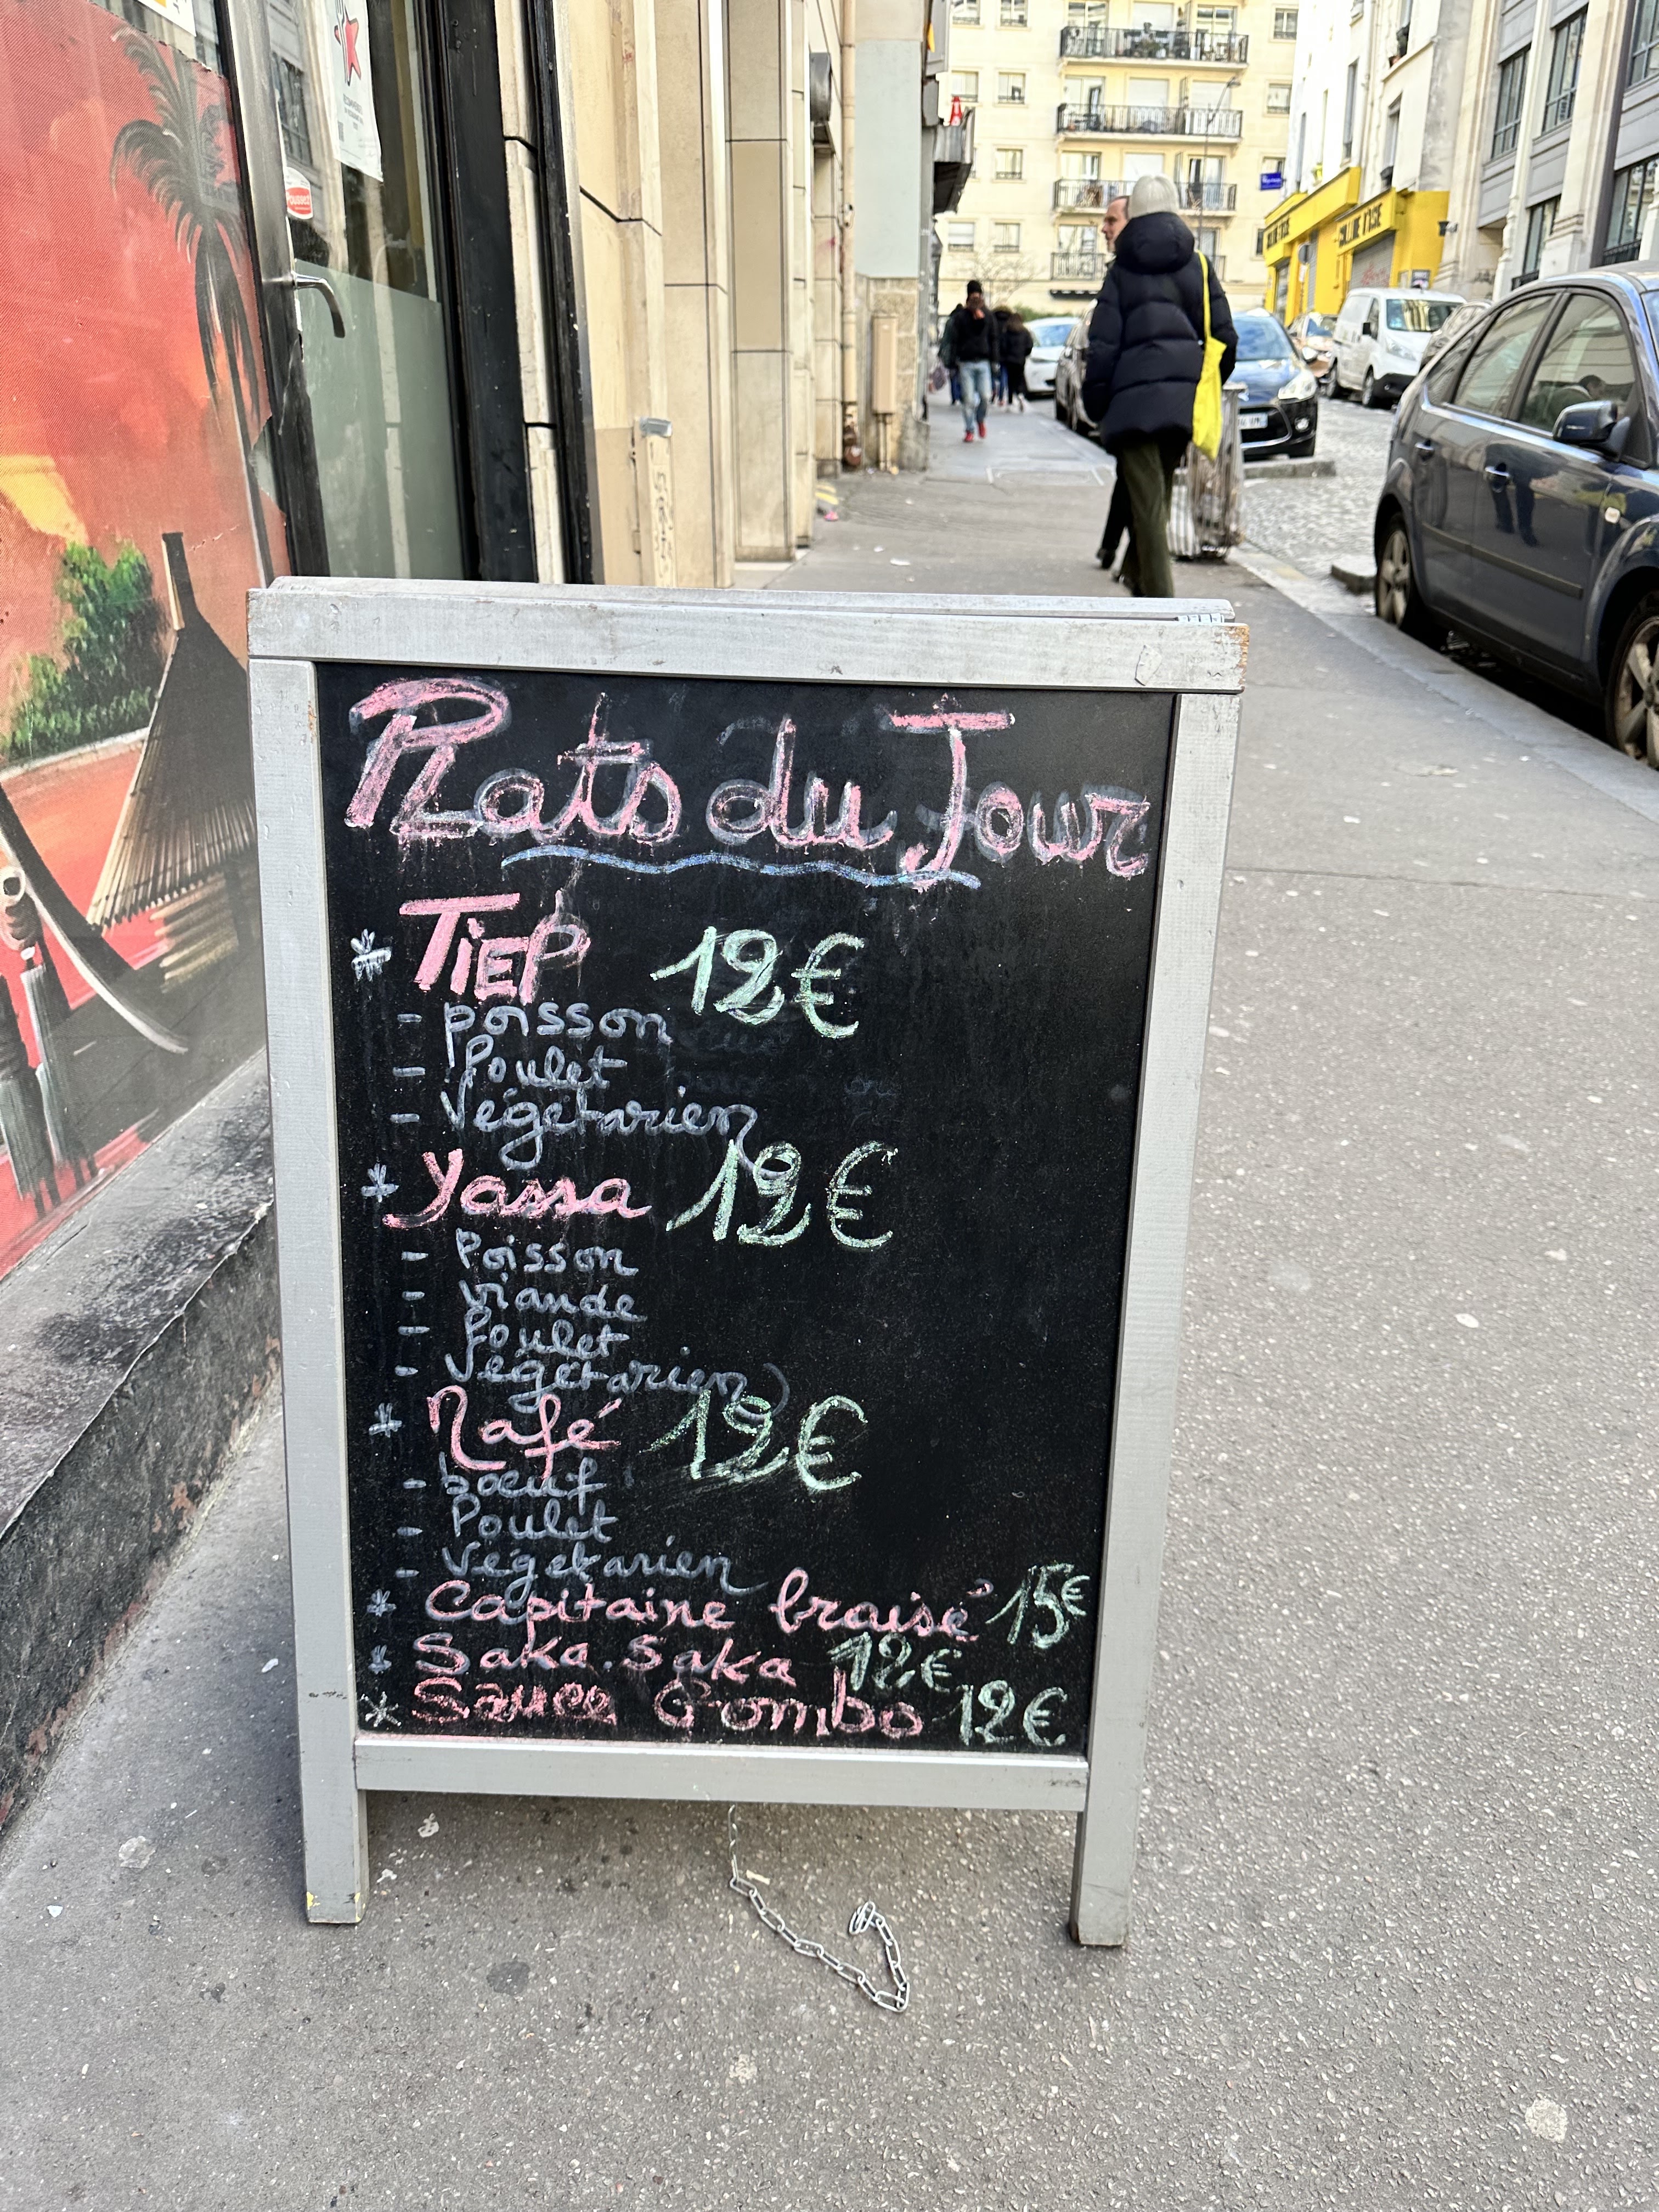 Plats du Jour
* TiEP 12€
- poisson
- Poulet
- Végétarien
* Yassa 12€
- Poisson
- viande
- Poulet
- Végétarien
* Mafé 12€
- boeuf
- Poulet
- Végétarien
* Capitaine braisé 15€
* Saka.Saka 12€
* Sauce Gombo 12€